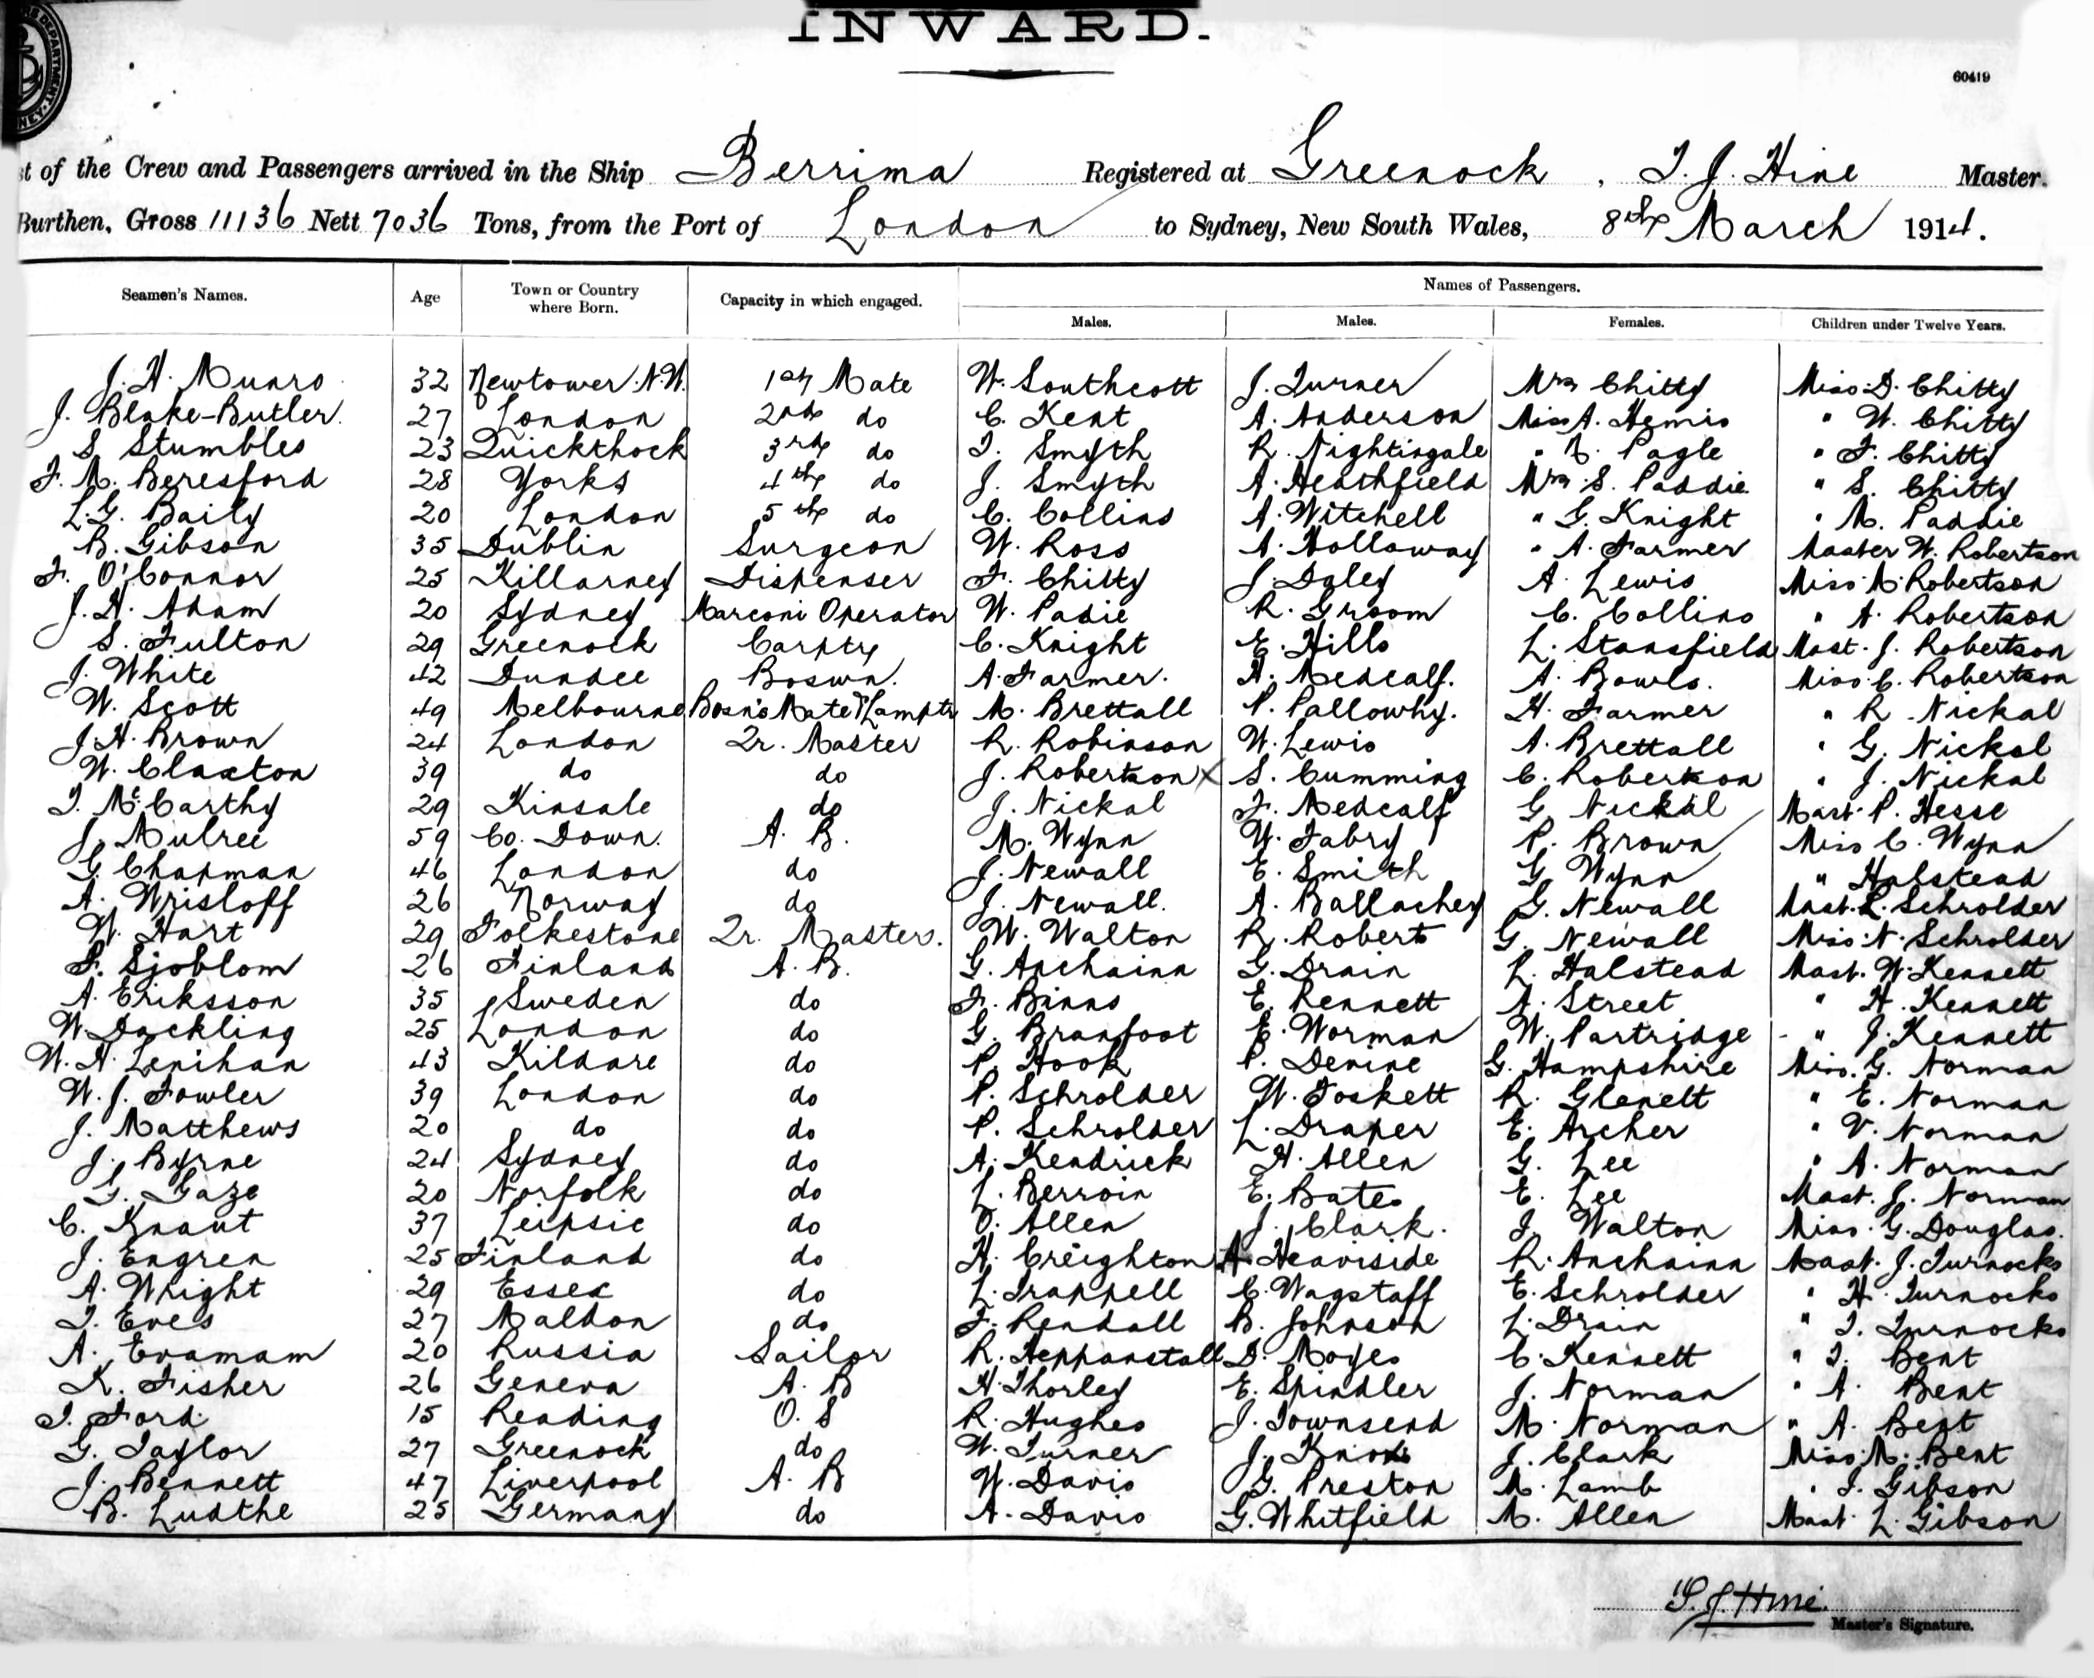 INWARD.
60419
st of the Crew and Passengers arrived in the Ship Berrima Registered at Greenock, T. J. Hine Master.
Burthen, Gross 11136 Nett 7036 Tons, from the Port of London to Sydney, New South Wales, 8th March 1914.
Names of Passengers.
Seamen's Names. Age Town or Country where Born. Capacity in which engaged. Males. Males. Females. Children under Twelve Years.
J. H. Munro 32 Newtower N.W. 1st Mate W. Southcott J. Turner Mrs Chitty Miss D. Chitty
J. Blake-Butler. 27 London 2nd do C. Kent A. Anderson Miss A. Hemis " W. Chitty
S. Stumbles 23 Quickthock 3rd do T. Smyth R. Nightingale " N. Pagle " F. Chitty
F. M. Beresford 28 Yorks 4th do J. Smyth A. Heathfield Mrs S. Paddie " S. Chitty
L. G. Baily 20 London 5th do C. Collins A. Witchell " G. Knight " M. Paddie
B. Gibson 35 Dublin Surgeon W. Ross A. Holloway " A. Farmer Master W. Robertson
F. O'Connor 25 Killarney Dispenser F. Chitty J. Daley A. Lewis Miss M. Robertson
J. H. Adam 20 Sydney Marconi Operator W. Padie R. Groom C. Collins " A. Robertson
S. Fulton 29 Greenock Carptr C. Knight E. Hills L. Stansfield Mast. J. Robertson
J. White 42 Dundee Boswn. A. Farmer. A. Medcalf. A. Bowls. Miss C. Robertson
W. Scott 49 Melbourne Bosn's Mate & Lamptr M. Brettall P. Pallowhy. H. Farmer " R. Nickal
J. H. Brown 24 London Qr. Master R. Robinson W. Lewis A. Brettall " G. Nickal
W. Claxton 39 do do J. Robertson x S. Cumming C. Robertson " J. Nickal
T. McCarthy 29 Kinsale do J. Nickal F. Medcalf G. Nickal Mast. P. Hesse
J. Mulree 59 Co. Down. A. B. M. Wynn W. Fabry P. Brown Miss C. Wynn
G. Chapman 46 London do J. Newall E. Smith G. Wynn " Halstead
A. Wrisloff 26 Norway do J. Newall. A. Ballachey G. Newall Mast. L. Schrolder
W. Hart 29 Folkestone Qr. Master. W. Walton R. Roberts G. Newall Miss N. Schrolder
F. Sjoblom 26 Finland A. B. G. Anchainn G. Drain L. Halstead Mast. W. Kennett
A. Eriksson 35 Sweden do F. Binns E. Kennett A. Street " H. Kennett
W. Dackling 25 London do G. Branfoot E. Worman W. Partridge " J. Kennett
W. H. Lenihan 43 Kildare do P. Hook P. Denine G. Hampshire Miss. G. Norman
W. J. Fowler 39 London do P. Schrolder W. Foskett R. Glenett " E. Norman
J. Matthews 20 do do P. Schrolder L. Draper E. Archer " V. Norman
J. Byrne 24 Sydney do A. Kendrick H. Allen G. Lee " A. Norman
G. Gaze 20 Norfolk do L. Berroin E. Bates E. Lee Mast. J. Norman
C. Knaut 37 Leipsic do O. Allen J. Clark. J. Walton Miss. G. Douglas.
J. Engren 25 Finland do H. Creighton A. Heaviside R. Anchainn Mast. J. Turnocks
A. Wright 29 Essex do L. Trappell C. Wagstaff E. Schrolder " H. Turnocks
T. Eves 27 Maldon do F. Rendall B. Johnson L. Drain " T. Turnocks
A. Evamam 20 Russia Sailor R. Heppanstall D. Moyes C. Kennett " T. Bent
K. Fisher 26 Geneva A. B H. Thorley E. Spindler J. Norman " A. Bent
T. Ford 15 Reading O. S R. Hughes J. Townsend M. Norman " A. Bent
G. Taylor 27 Greenock do W. Turner J. Knox J. Clark Miss M. Bent
J. Bennett 47 Liverpool A. B W. Davis G. Preston M. Lamb " J. Gibson
B. Ludthe 25 Germany do A. Davis G. Whitfield M. Allen Mast. L. Gibson
T. J. Hine.
Master's Signature.